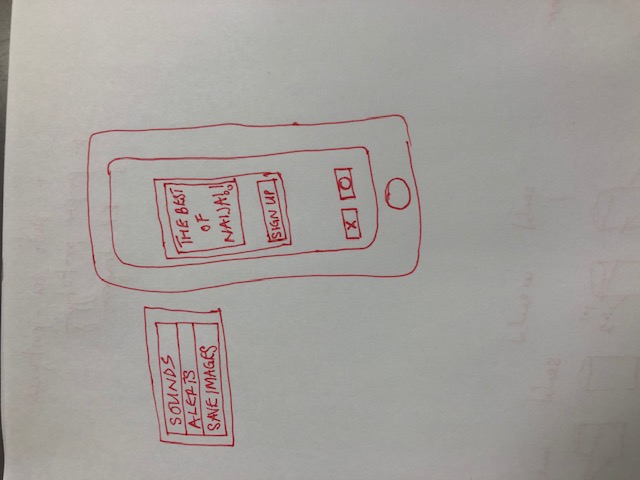 SOUNDS
ALERTS
SAVE IMAGES
THE BEST
OF
NAIJA!!
SIGN UP
X O